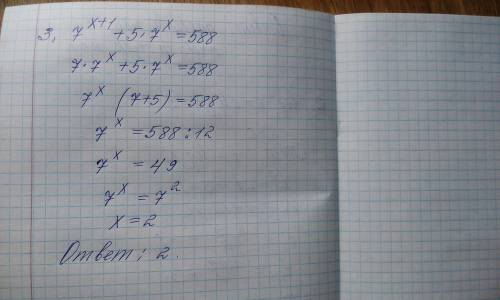 3, 7^{x+1} + 5 · 7^x = 588
7 · 7^x + 5 · 7^x = 588
7^x (7+5) = 588
7^x = 588 : 12
7^x = 49
7^x = 7^2
x = 2
Ответ: 2.